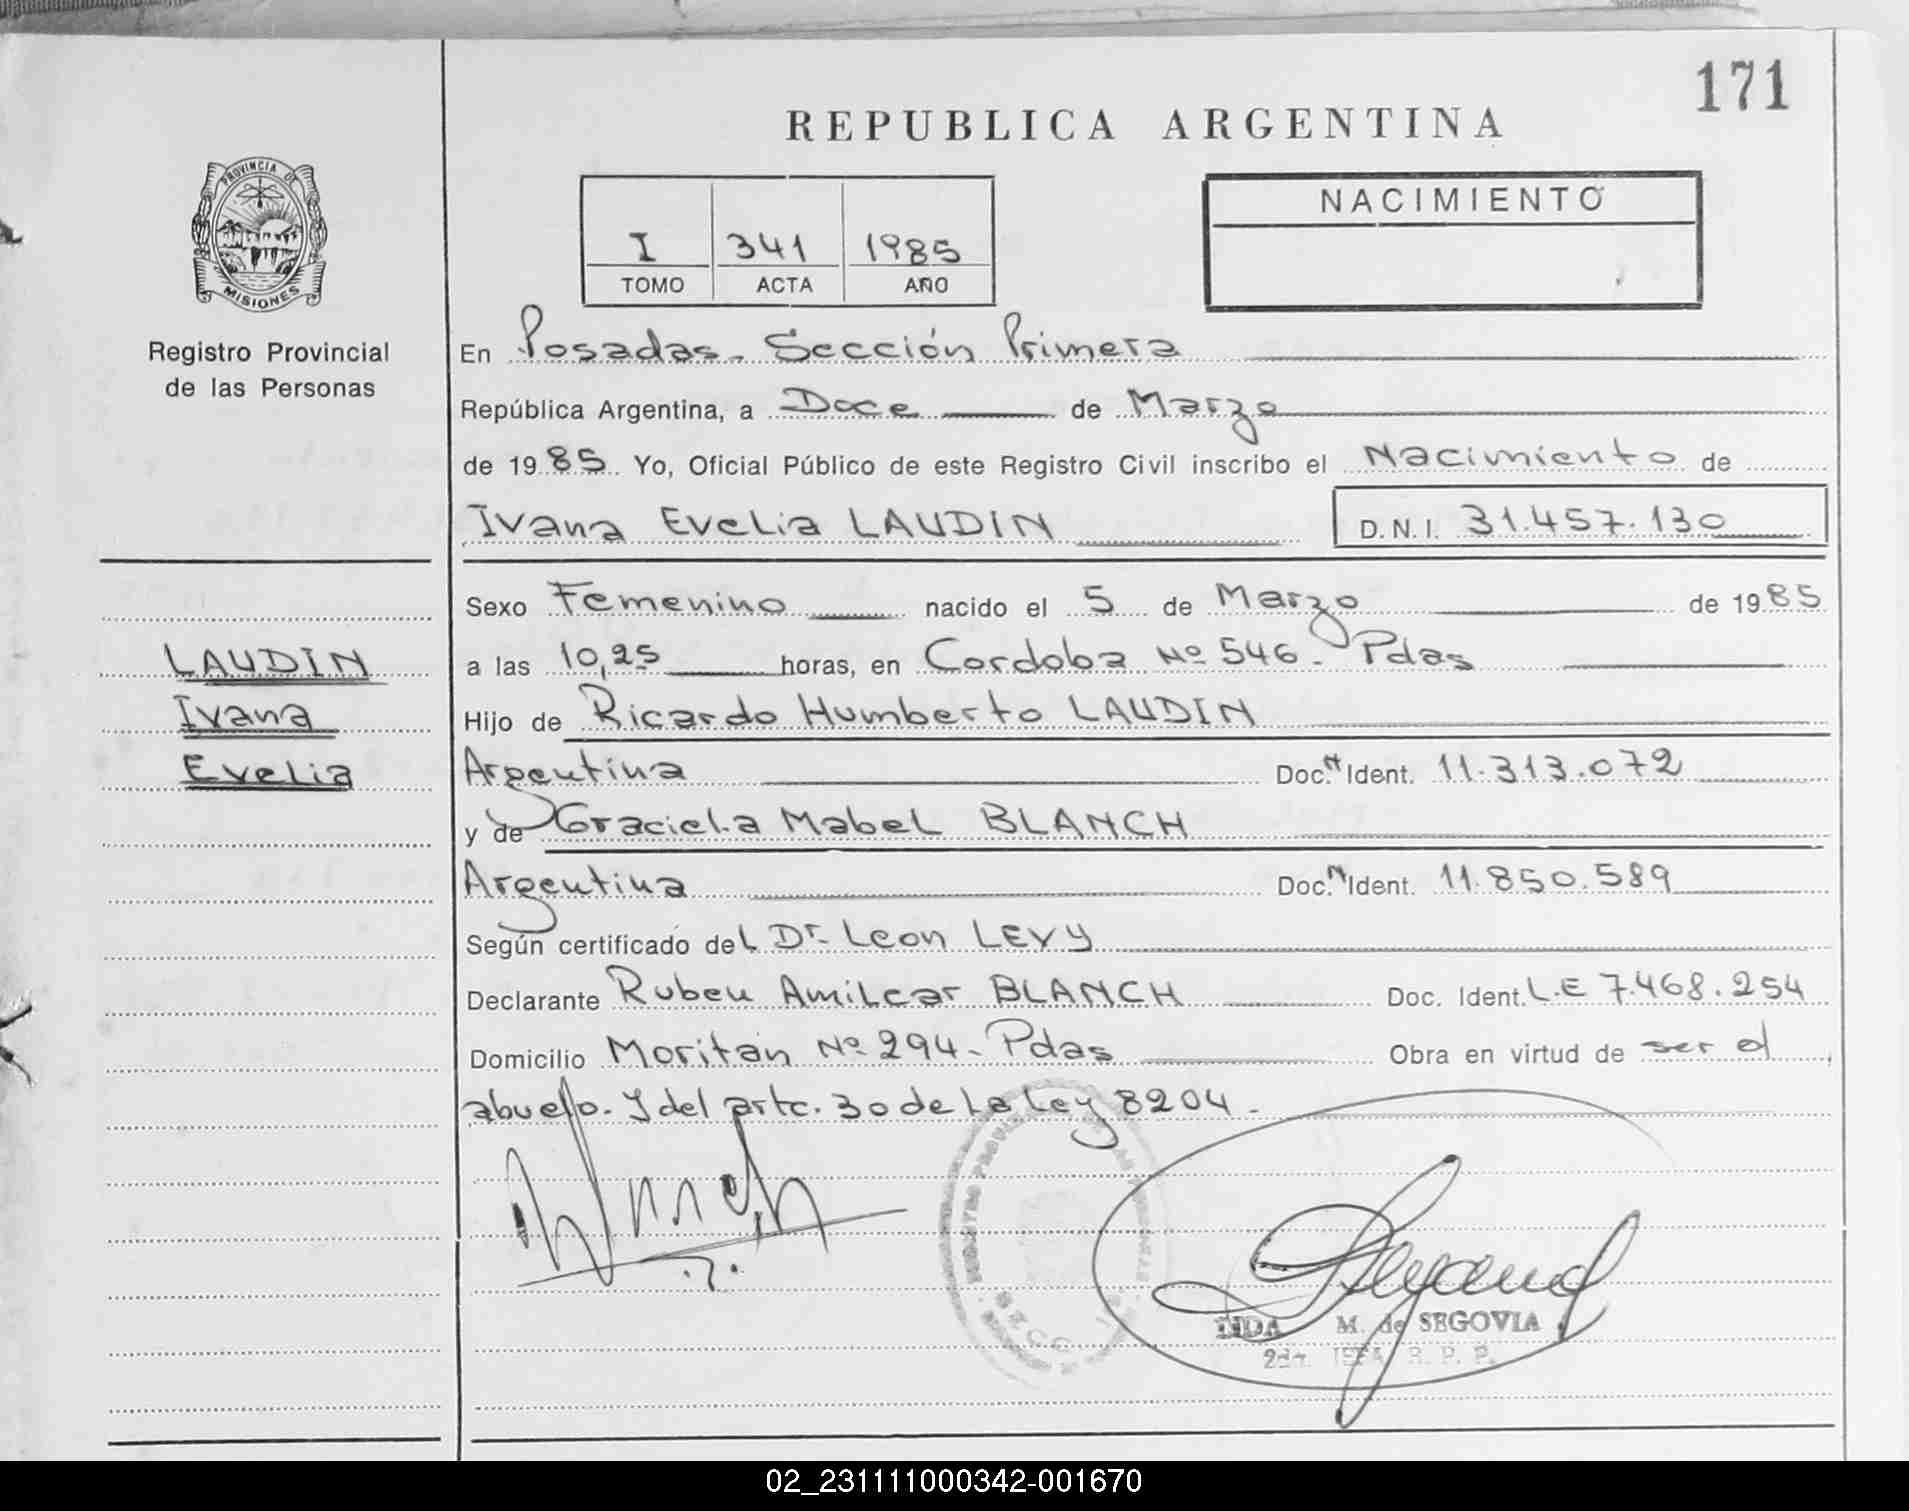 171
REPUBLICA ARGENTINA
PROVINCIA DE
MISIONES
Registro Provincial
de las Personas
I 341 1985
TOMO ACTA AÑO
NACIMIENTO
En Posadas. Sección Primera
República Argentina, a Doce de Marzo
de 1985 Yo, Oficial Público de este Registro Civil inscribo el Nacimiento de
Ivana Evelia LAUDIN D.N.I. 31.457.130
LAUDIN
Ivana
Evelia
Sexo Femenino nacido el 5 de Marzo de 1985
a las 10,25 horas, en Cordoba Nº 546. Pdas
Hijo de Ricardo Humberto LAUDIN
Argentina Doc. Ident. 11.313.072
y de Graciela Mabel BLANCH
Argentina Doc. Ident. 11.850.589
Según certificado del Dr. Leon LEVY
Declarante Ruben Amilcar BLANCH Doc. Ident. L.E 7.468.254
Domicilio Moritan Nº 294. Pdas Obra en virtud de ser el
abuelo. Y del artc. 30 de la Ley 8204.
M. de SEGOVIA
R. P. P.
02_231111000342-001670